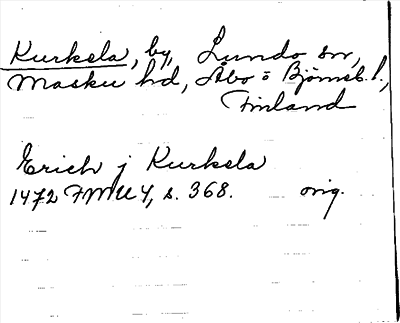 Kurksla, by, Lundo sn,
Masku hd, Åbo o Björneb. l.,
Finland
Erich j Kurksla
1472 FMU 4, s. 368. orig.